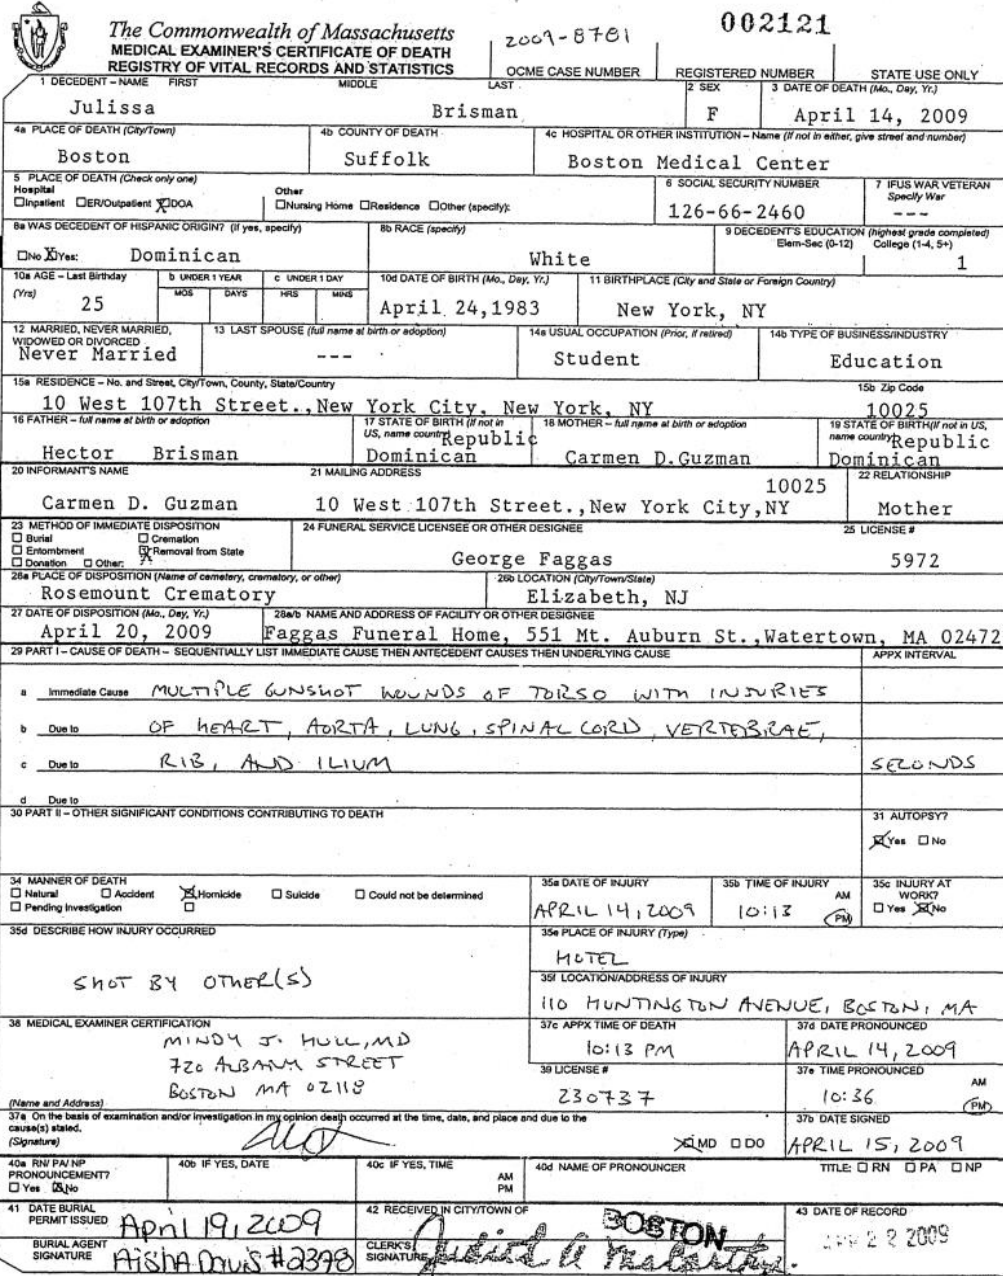 The Commonwealth of Massachusetts
MEDICAL EXAMINER'S CERTIFICATE OF DEATH
REGISTRY OF VITAL RECORDS AND STATISTICS
2009-8781
OCME CASE NUMBER
002121
REGISTERED NUMBER
STATE USE ONLY
1 DECEDENT – NAME FIRST MIDDLE LAST
Julissa Brisman
2 SEX
F
3 DATE OF DEATH (Mo., Day, Yr.)
April 14, 2009
4a PLACE OF DEATH (City/Town)
Boston
4b COUNTY OF DEATH
Suffolk
4c HOSPITAL OR OTHER INSTITUTION – Name (If not in either, give street and number)
Boston Medical Center
5 PLACE OF DEATH (Check only one)
Hospital
☐Inpatient ☐ER/Outpatient ☒DOA
Other
☐Nursing Home ☐Residence ☐Other (specify):
6 SOCIAL SECURITY NUMBER
126-66-2460
7 IF US WAR VETERAN
Specify War
---
8a WAS DECEDENT OF HISPANIC ORIGIN? (If yes, specify)
☐No ☒Yes: Dominican
8b RACE (specify)
White
9 DECEDENT'S EDUCATION (highest grade completed)
Elem-Sec (0-12) College (1-4, 5+)
1
10a AGE – Last Birthday
(Yrs) 25
b UNDER 1 YEAR
MOS DAYS
c UNDER 1 DAY
HRS MINS
10d DATE OF BIRTH (Mo., Day, Yr.)
April 24,1983
11 BIRTHPLACE (City and State or Foreign Country)
New York, NY
12 MARRIED, NEVER MARRIED,
WIDOWED OR DIVORCED
Never Married
13 LAST SPOUSE (full name at birth or adoption)
---
14a USUAL OCCUPATION (Prior, if retired)
Student
14b TYPE OF BUSINESS/INDUSTRY
Education
15a RESIDENCE – No. and Street, City/Town, County, State/Country
10 West 107th Street.,New York City, New York, NY
15b Zip Code
10025
16 FATHER – full name at birth or adoption
Hector Brisman
17 STATE OF BIRTH (If not in
US, name country)
Republic
Dominican
18 MOTHER – full name at birth or adoption
Carmen D.Guzman
19 STATE OF BIRTH(If not in US,
name country)
Republic
Dominican
20 INFORMANT'S NAME
Carmen D. Guzman
21 MAILING ADDRESS
10025
10 West 107th Street.,New York City,NY
22 RELATIONSHIP
Mother
23 METHOD OF IMMEDIATE DISPOSITION
☐ Burial ☐ Cremation
☐ Entombment ☒ Removal from State
☐ Donation ☐ Other:
24 FUNERAL SERVICE LICENSEE OR OTHER DESIGNEE
George Faggas
25 LICENSE #
5972
26a PLACE OF DISPOSITION (Name of cemetery, crematory, or other)
Rosemount Crematory
26b LOCATION (City/Town/State)
Elizabeth, NJ
27 DATE OF DISPOSITION (Mo., Day, Yr.)
April 20, 2009
28a/b NAME AND ADDRESS OF FACILITY OR OTHER DESIGNEE
Faggas Funeral Home, 551 Mt. Auburn St.,Watertown, MA 02472
29 PART I – CAUSE OF DEATH – SEQUENTIALLY LIST IMMEDIATE CAUSE THEN ANTECEDENT CAUSES THEN UNDERLYING CAUSE
APPX INTERVAL
a Immediate Cause MULTIPLE GUNSHOT WOUNDS OF TORSO WITH INJURIES
b Due to OF HEART, AORTA, LUNG, SPINAL CORD, VERTEBRAE,
c Due to RIB, AND ILIUM SECONDS
d Due to
30 PART II – OTHER SIGNIFICANT CONDITIONS CONTRIBUTING TO DEATH
31 AUTOPSY?
☒Yes ☐ No
34 MANNER OF DEATH
☐ Natural ☐ Accident ☒Homicide ☐ Suicide ☐ Could not be determined
☐ Pending Investigation ☐
35a DATE OF INJURY
APRIL 14, 2009
35b TIME OF INJURY
AM
10:13 PM
35c INJURY AT
WORK?
☐ Yes ☒No
35d DESCRIBE HOW INJURY OCCURRED
SHOT BY OTHER(S)
35e PLACE OF INJURY (Type)
MOTEL
35f LOCATION/ADDRESS OF INJURY
110 HUNTINGTON AVENUE, BOSTON, MA
38 MEDICAL EXAMINER CERTIFICATION
MINDY J. HULL, MD
720 ALBANY STREET
BOSTON MA 02118
(Name and Address)
37c APPX TIME OF DEATH
10:13 PM
37d DATE PRONOUNCED
APRIL 14, 2009
39 LICENSE #
230737
37e TIME PRONOUNCED
AM
10:36 PM
37a On the basis of examination and/or investigation in my opinion death occurred at the time, date, and place and due to the
cause(s) stated.
(Signature)
☒MD ☐ DO
37b DATE SIGNED
APRIL 15, 2009
40a RN/ PA/ NP
PRONOUNCEMENT?
☐ Yes ☒No
40b IF YES, DATE
40c IF YES, TIME
AM
PM
40d NAME OF PRONOUNCER
TITLE: ☐ RN ☐ PA ☐ NP
41 DATE BURIAL
PERMIT ISSUED
April 19, 2009
BURIAL AGENT
SIGNATURE
Aisha Davis #2398
42 RECEIVED IN CITY/TOWN OF
BOSTON
CLERK'S
SIGNATURE
43 DATE OF RECORD
22 2009